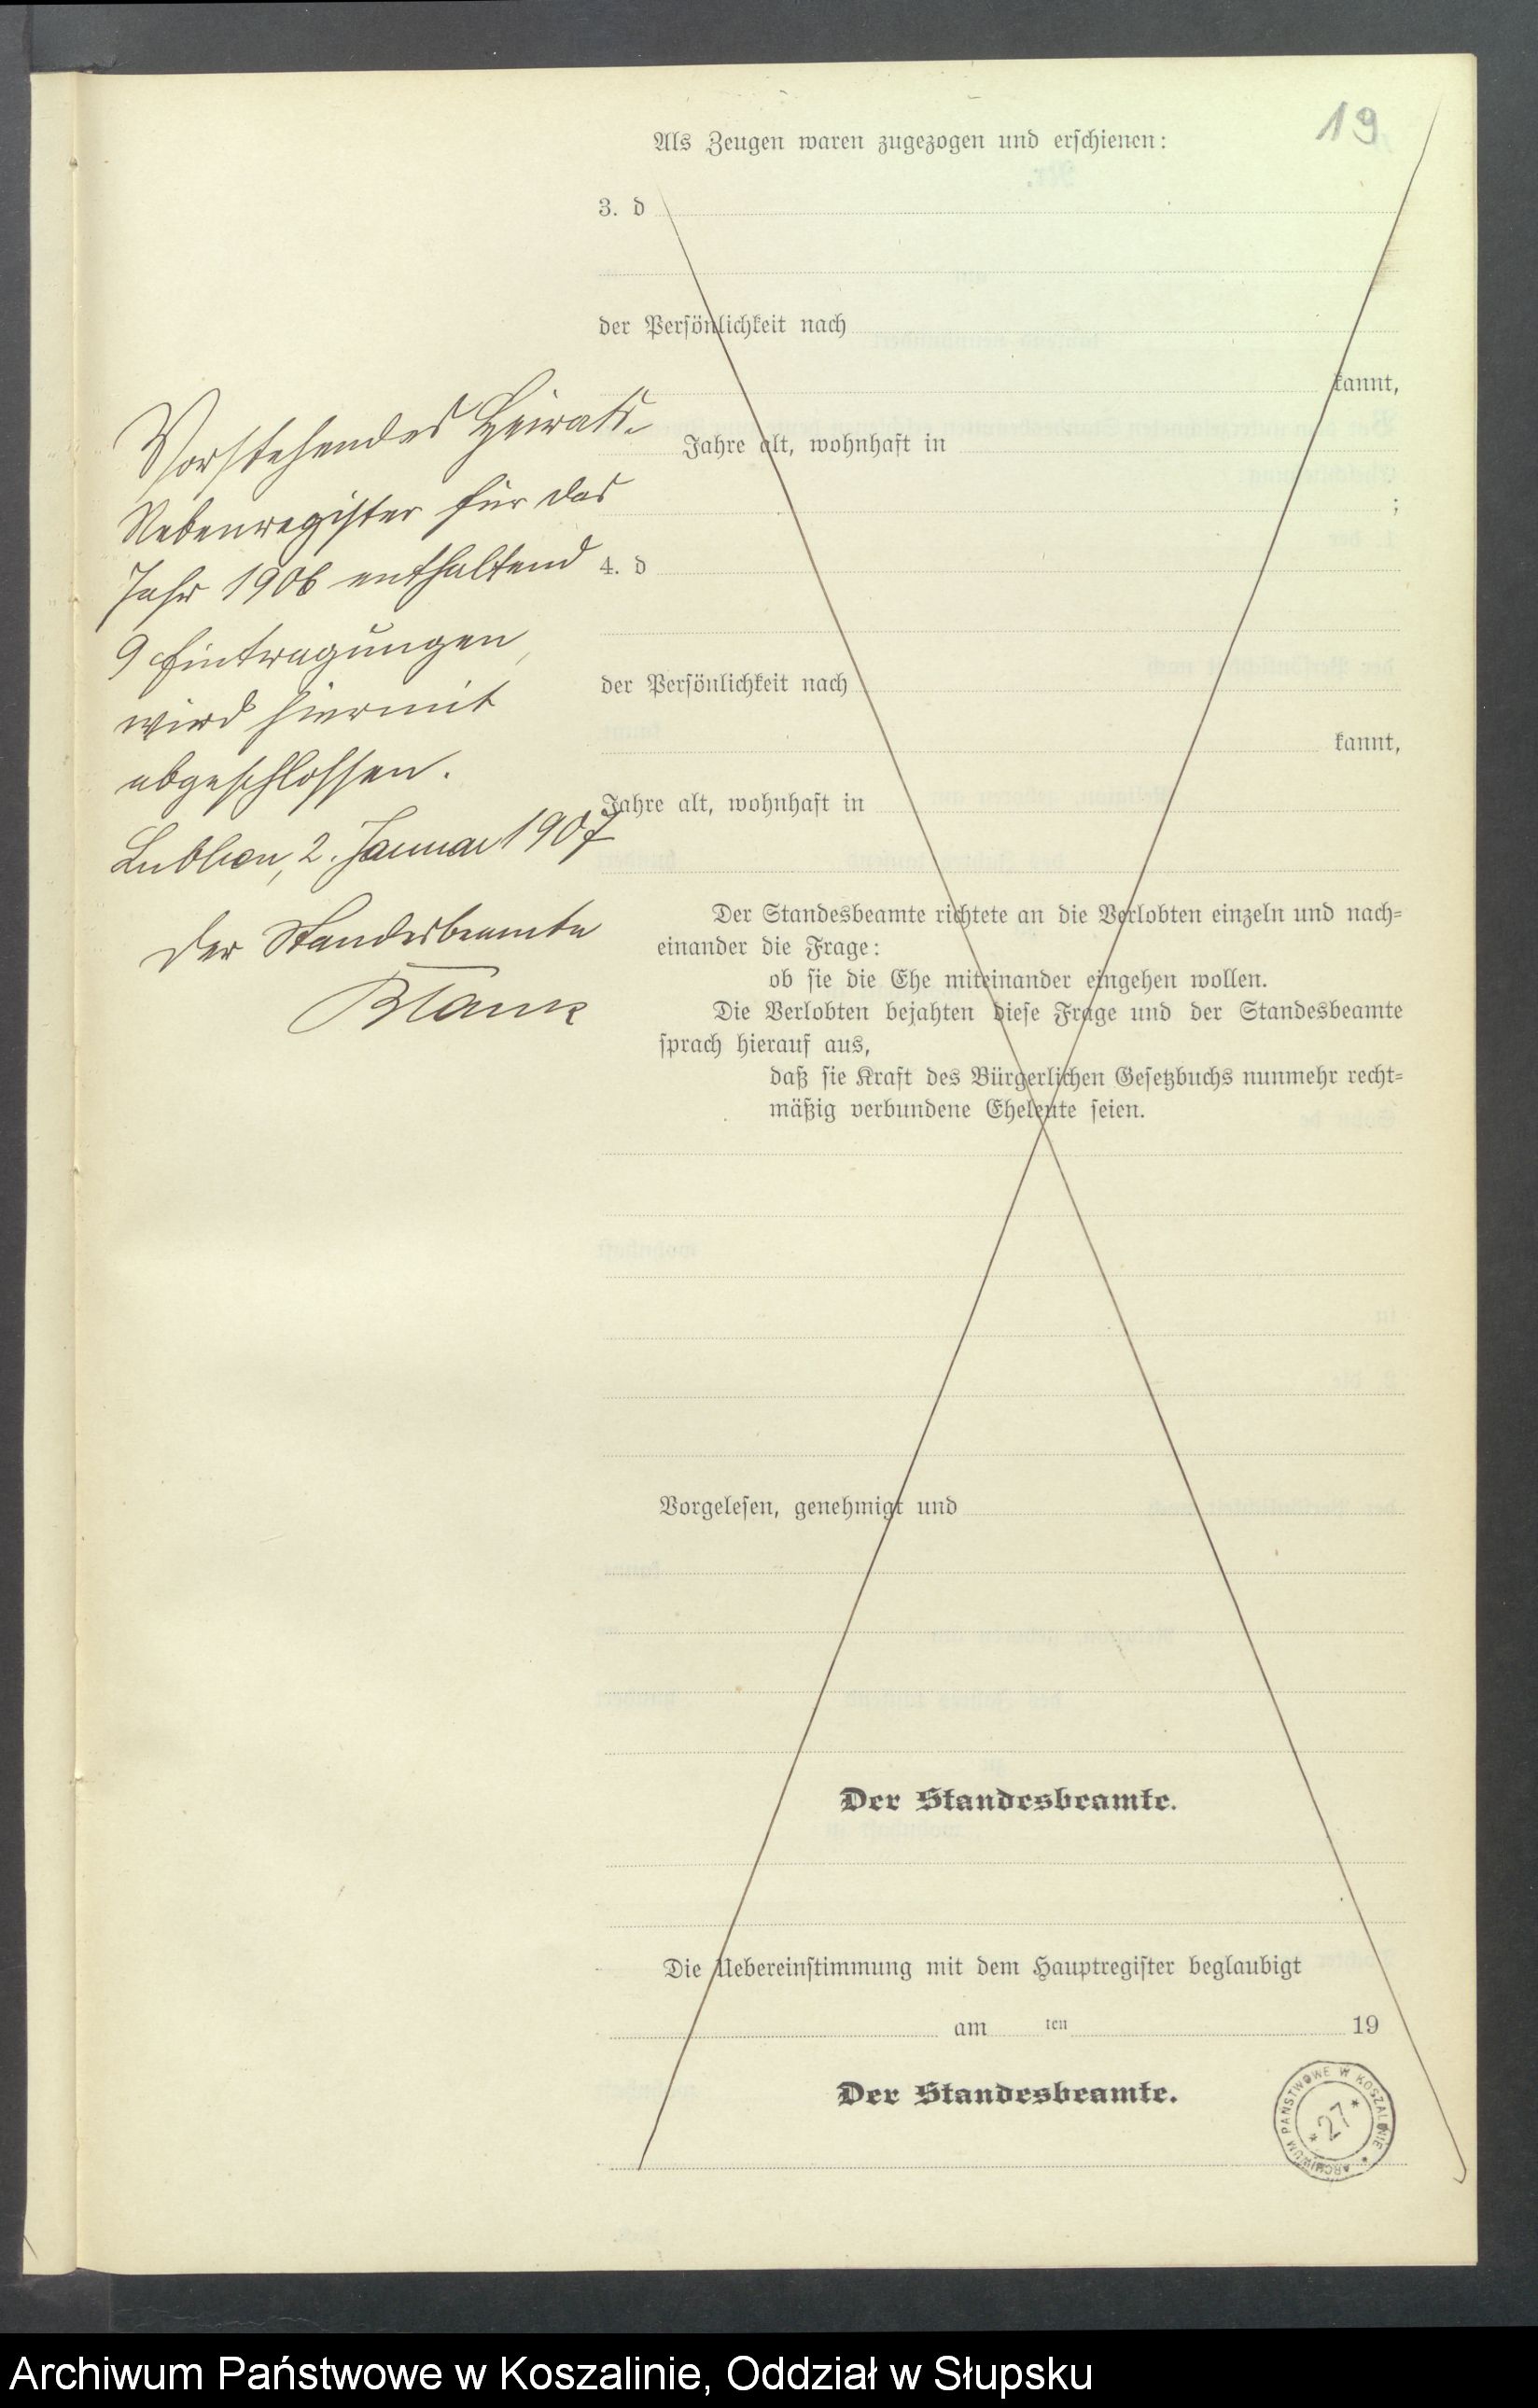 19
Als Zeugen waren zugezogen und erschienen:
3. d
der Persönlichkeit nach
kannt,
Jahre alt, wohnhaft in
;
4. d
der Persönlichkeit nach
kannt,
Jahre alt, wohnhaft in
Vorstehendes Heirats-
Nebenregister für das
Jahr 1906 enthaltend
9 Eintragungen,
wird hiermit
abgeschlossen.
Lublow, 2. Januar 1907
Der Standesbeamte
Der Standesbeamte richtete an die Verlobten einzeln und nach=
einander die Frage:
ob sie die Ehe miteinander eingehen wollen.
Die Verlobten bejahten diese Frage und der Standesbeamte
sprach hierauf aus,
daß sie Kraft des Bürgerlichen Gesetzbuchs nunmehr recht=
mäßig verbundene Eheleute seien.
Vorgelesen, genehmigt und
Der Standesbeamte.
Die Uebereinstimmung mit dem Hauptregister beglaubigt
am ten 19
Der Standesbeamte.
ARCHIWUM PAŃSTWOWE W KOSZALINIE
* 27 *
Archiwum Państwowe w Koszalinie, Oddział w Słupsku